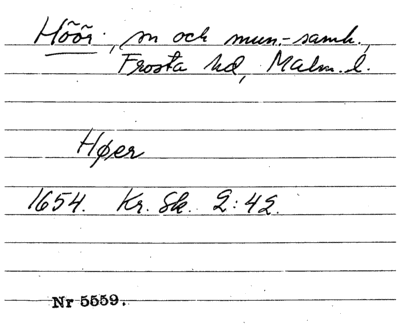 Höör, sn och mun.-samh.,
Frosta hd, Malm. l.
Høer
1654. Kr. Sk. 2:42.
Nr 5559.